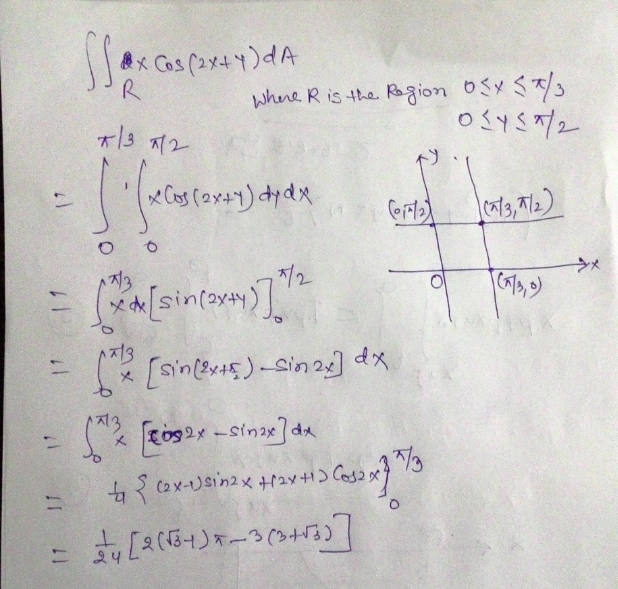 ∬_R x Cos(2x+y) dA
Where R is the Region 0≤x≤π/3
0≤y≤π/2
= ∫_0^{π/3} ∫_0^{π/2} x Cos(2x+y) dy dx
y
(0,π/2) (π/3,π/2)
x
0 (π/3,0)
= ∫_0^{π/3} x dx [sin(2x+y)]_0^{π/2}
= ∫_0^{π/3} x [sin(2x+π/2) - sin 2x] dx
= ∫_0^{π/3} x [cos 2x - sin 2x] dx
= 1/4 { (2x-1) sin 2x + (2x+1) Cos 2x }_0^{π/3}
= 1/24 [2(√3-1)π - 3(3+√3)]